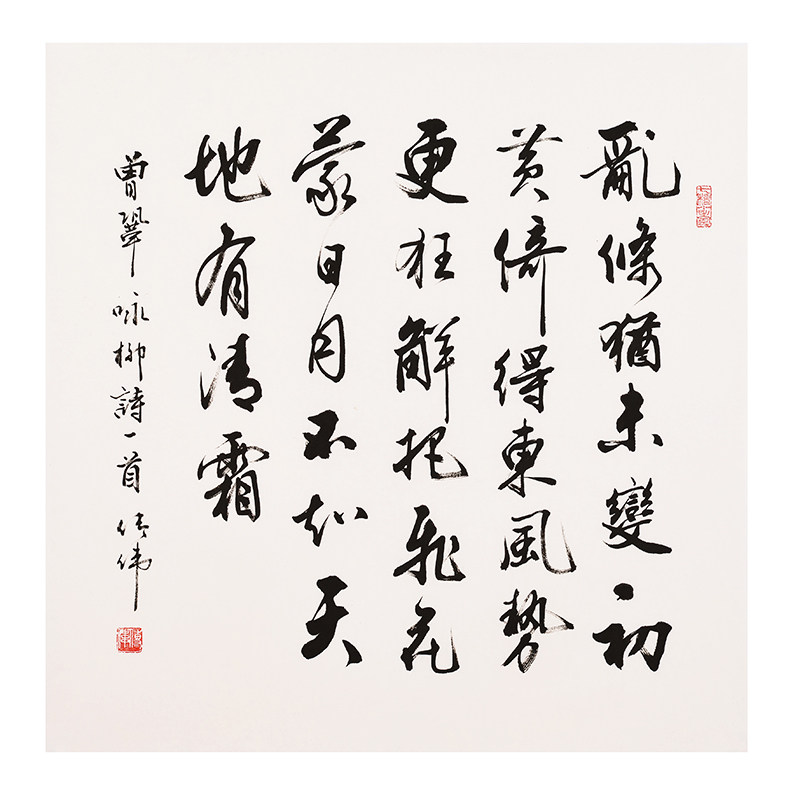 亂條猶未變初
黄倚得東風勢
更狂解把飛花
蒙日月不知天
地有清霜
曾鞏咏柳詩一首